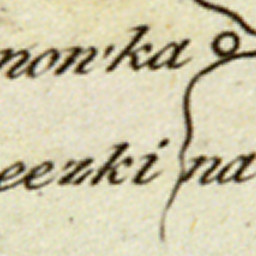 non'ka
eezki na